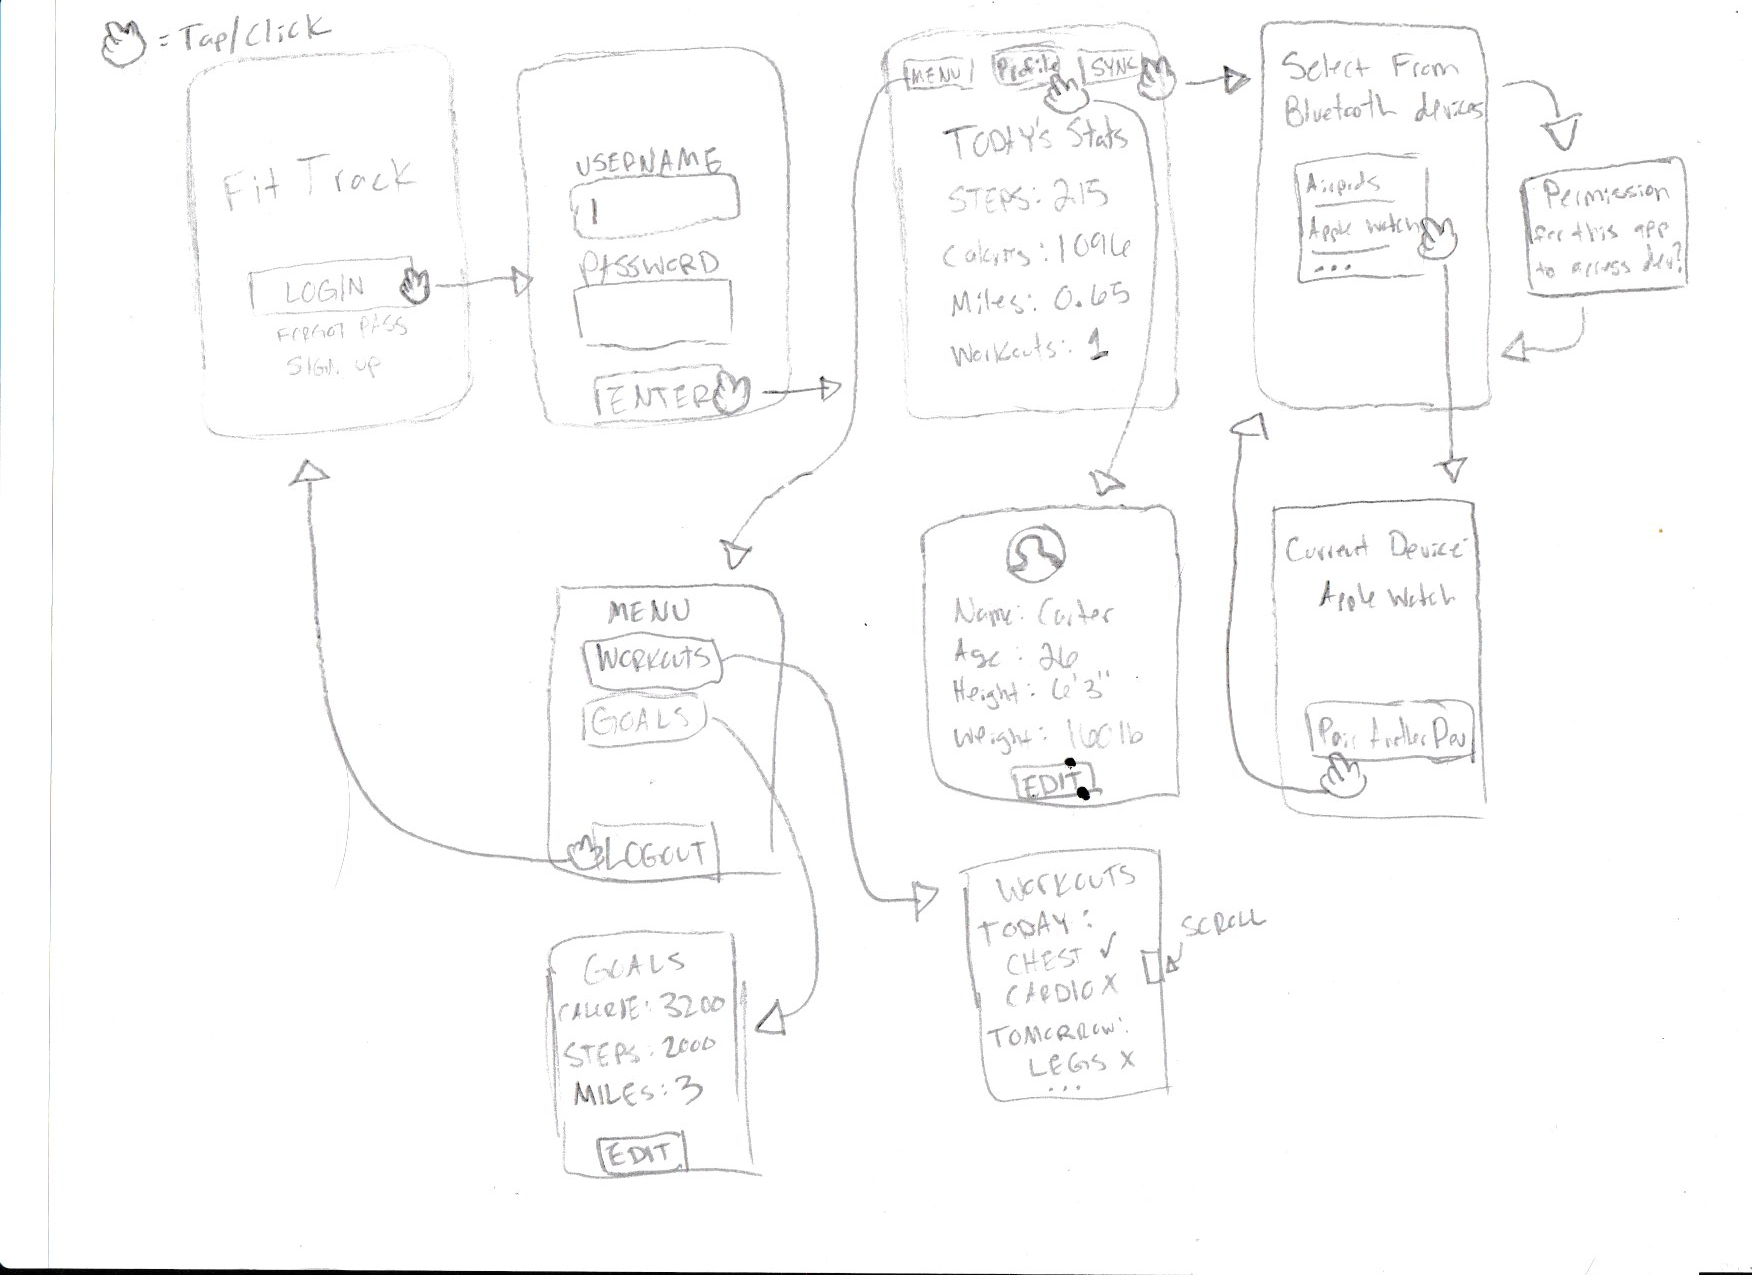 = Tap/Click
Fit Track
LOGIN
FORGOT PASS
SIGN UP
USERNAME
PASSWORD
ENTER
MENU
Profile
SYNC
TODAY's Stats
STEPS: 215
Calories: 1096
Miles: 0.65
Workouts: 1
Select From
Bluetooth devices
Airpods
Apple Watch
...
Permission
for this app
to access dev?
MENU
WORKOUTS
GOALS
LOGOUT
Name: Carter
Age: 26
Height: 6'3"
Weight: 160lb
EDIT
Current Device:
Apple Watch
Pair Another Dev
GOALS
CALORIE: 3200
STEPS: 2000
MILES: 3
EDIT
WORKOUTS
TODAY:
CHEST ✓
CARDIO X
TOMORROW:
LEGS X
...
SCROLL